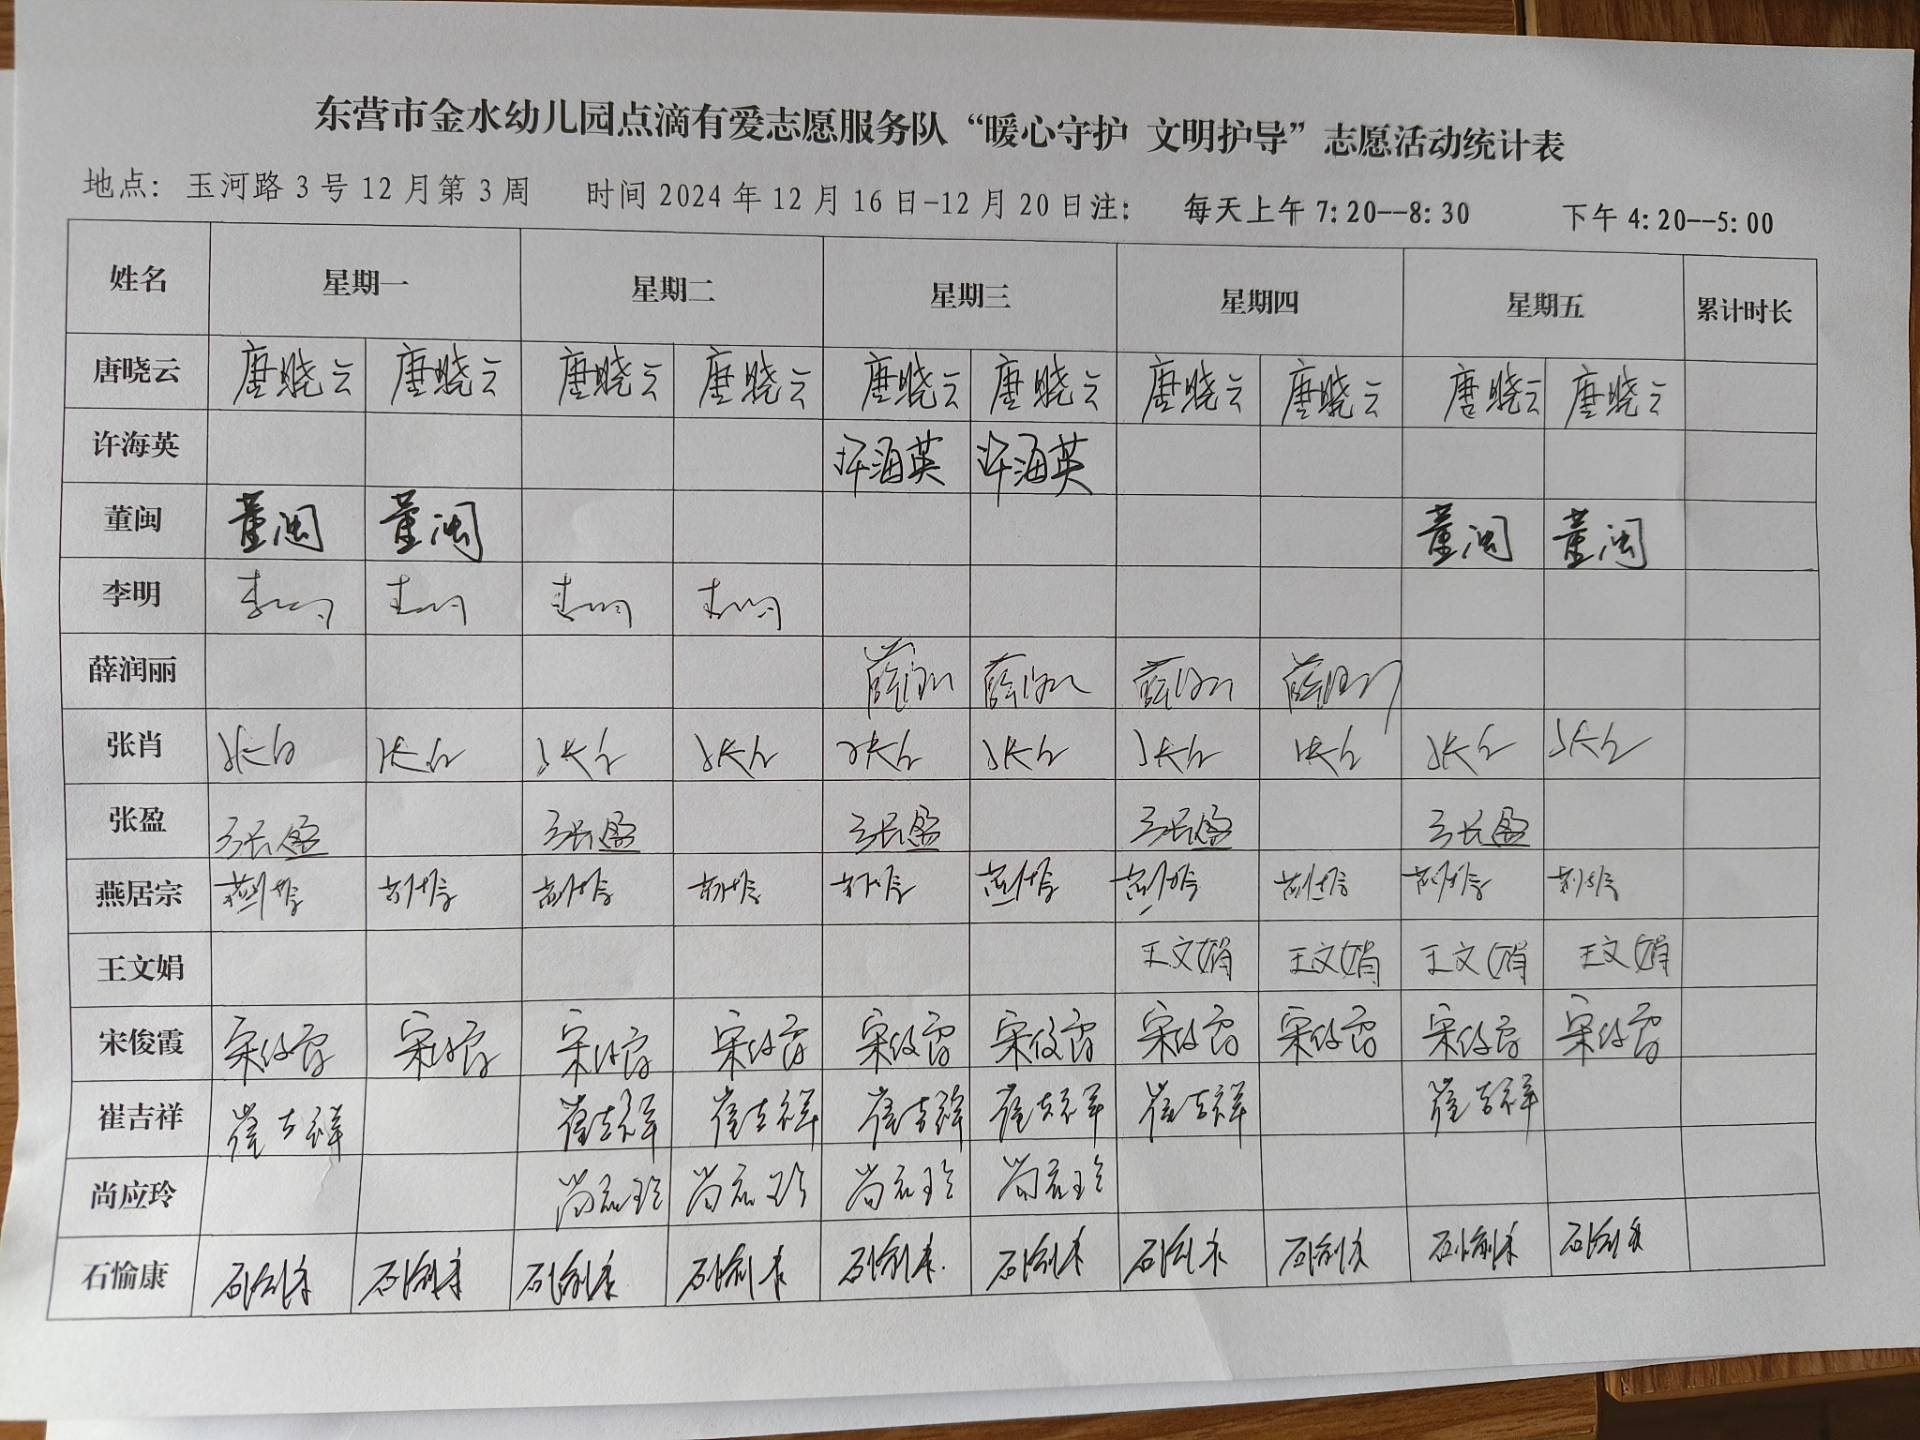 东营市金水幼儿园点滴有爱志愿服务队“暖心守护 文明护导”志愿活动统计表
地点: 玉河路3号12月第3周 时间2024年12月16日-12月20日注: 每天上午7:20--8:30 下午4:20--5:00
姓名 星期一 星期二 星期三 星期四 星期五 累计时长
唐晓云 唐晓云 唐晓云 唐晓云 唐晓云 唐晓云 唐晓云 唐晓云 唐晓云 唐晓云 唐晓云
许海英 许海英 许海英
董闽 董闽 董闽 董闽 董闽
李明 李明 李明 李明 李明
薛润丽 薛润丽 薛润丽 薛润丽 薛润丽
张肖 张肖 张肖 张肖 张肖 张肖 张肖 张肖 张肖 张肖 张肖
张盈 张盈 张盈 张盈 张盈 张盈
燕居宗
王文娟 王文娟 王文娟 王文娟 王文娟
宋俊霞 宋俊霞 宋俊霞 宋俊霞 宋俊霞 宋俊霞 宋俊霞 宋俊霞 宋俊霞 宋俊霞 宋俊霞
崔吉祥 崔吉祥 崔吉祥 崔吉祥 崔吉祥 崔吉祥 崔吉祥 崔吉祥
尚应玲 尚应玲 尚应玲 尚应玲 尚应玲
石愉康 石愉康 石愉康 石愉康 石愉康 石愉康 石愉康 石愉康 石愉康 石愉康 石愉康